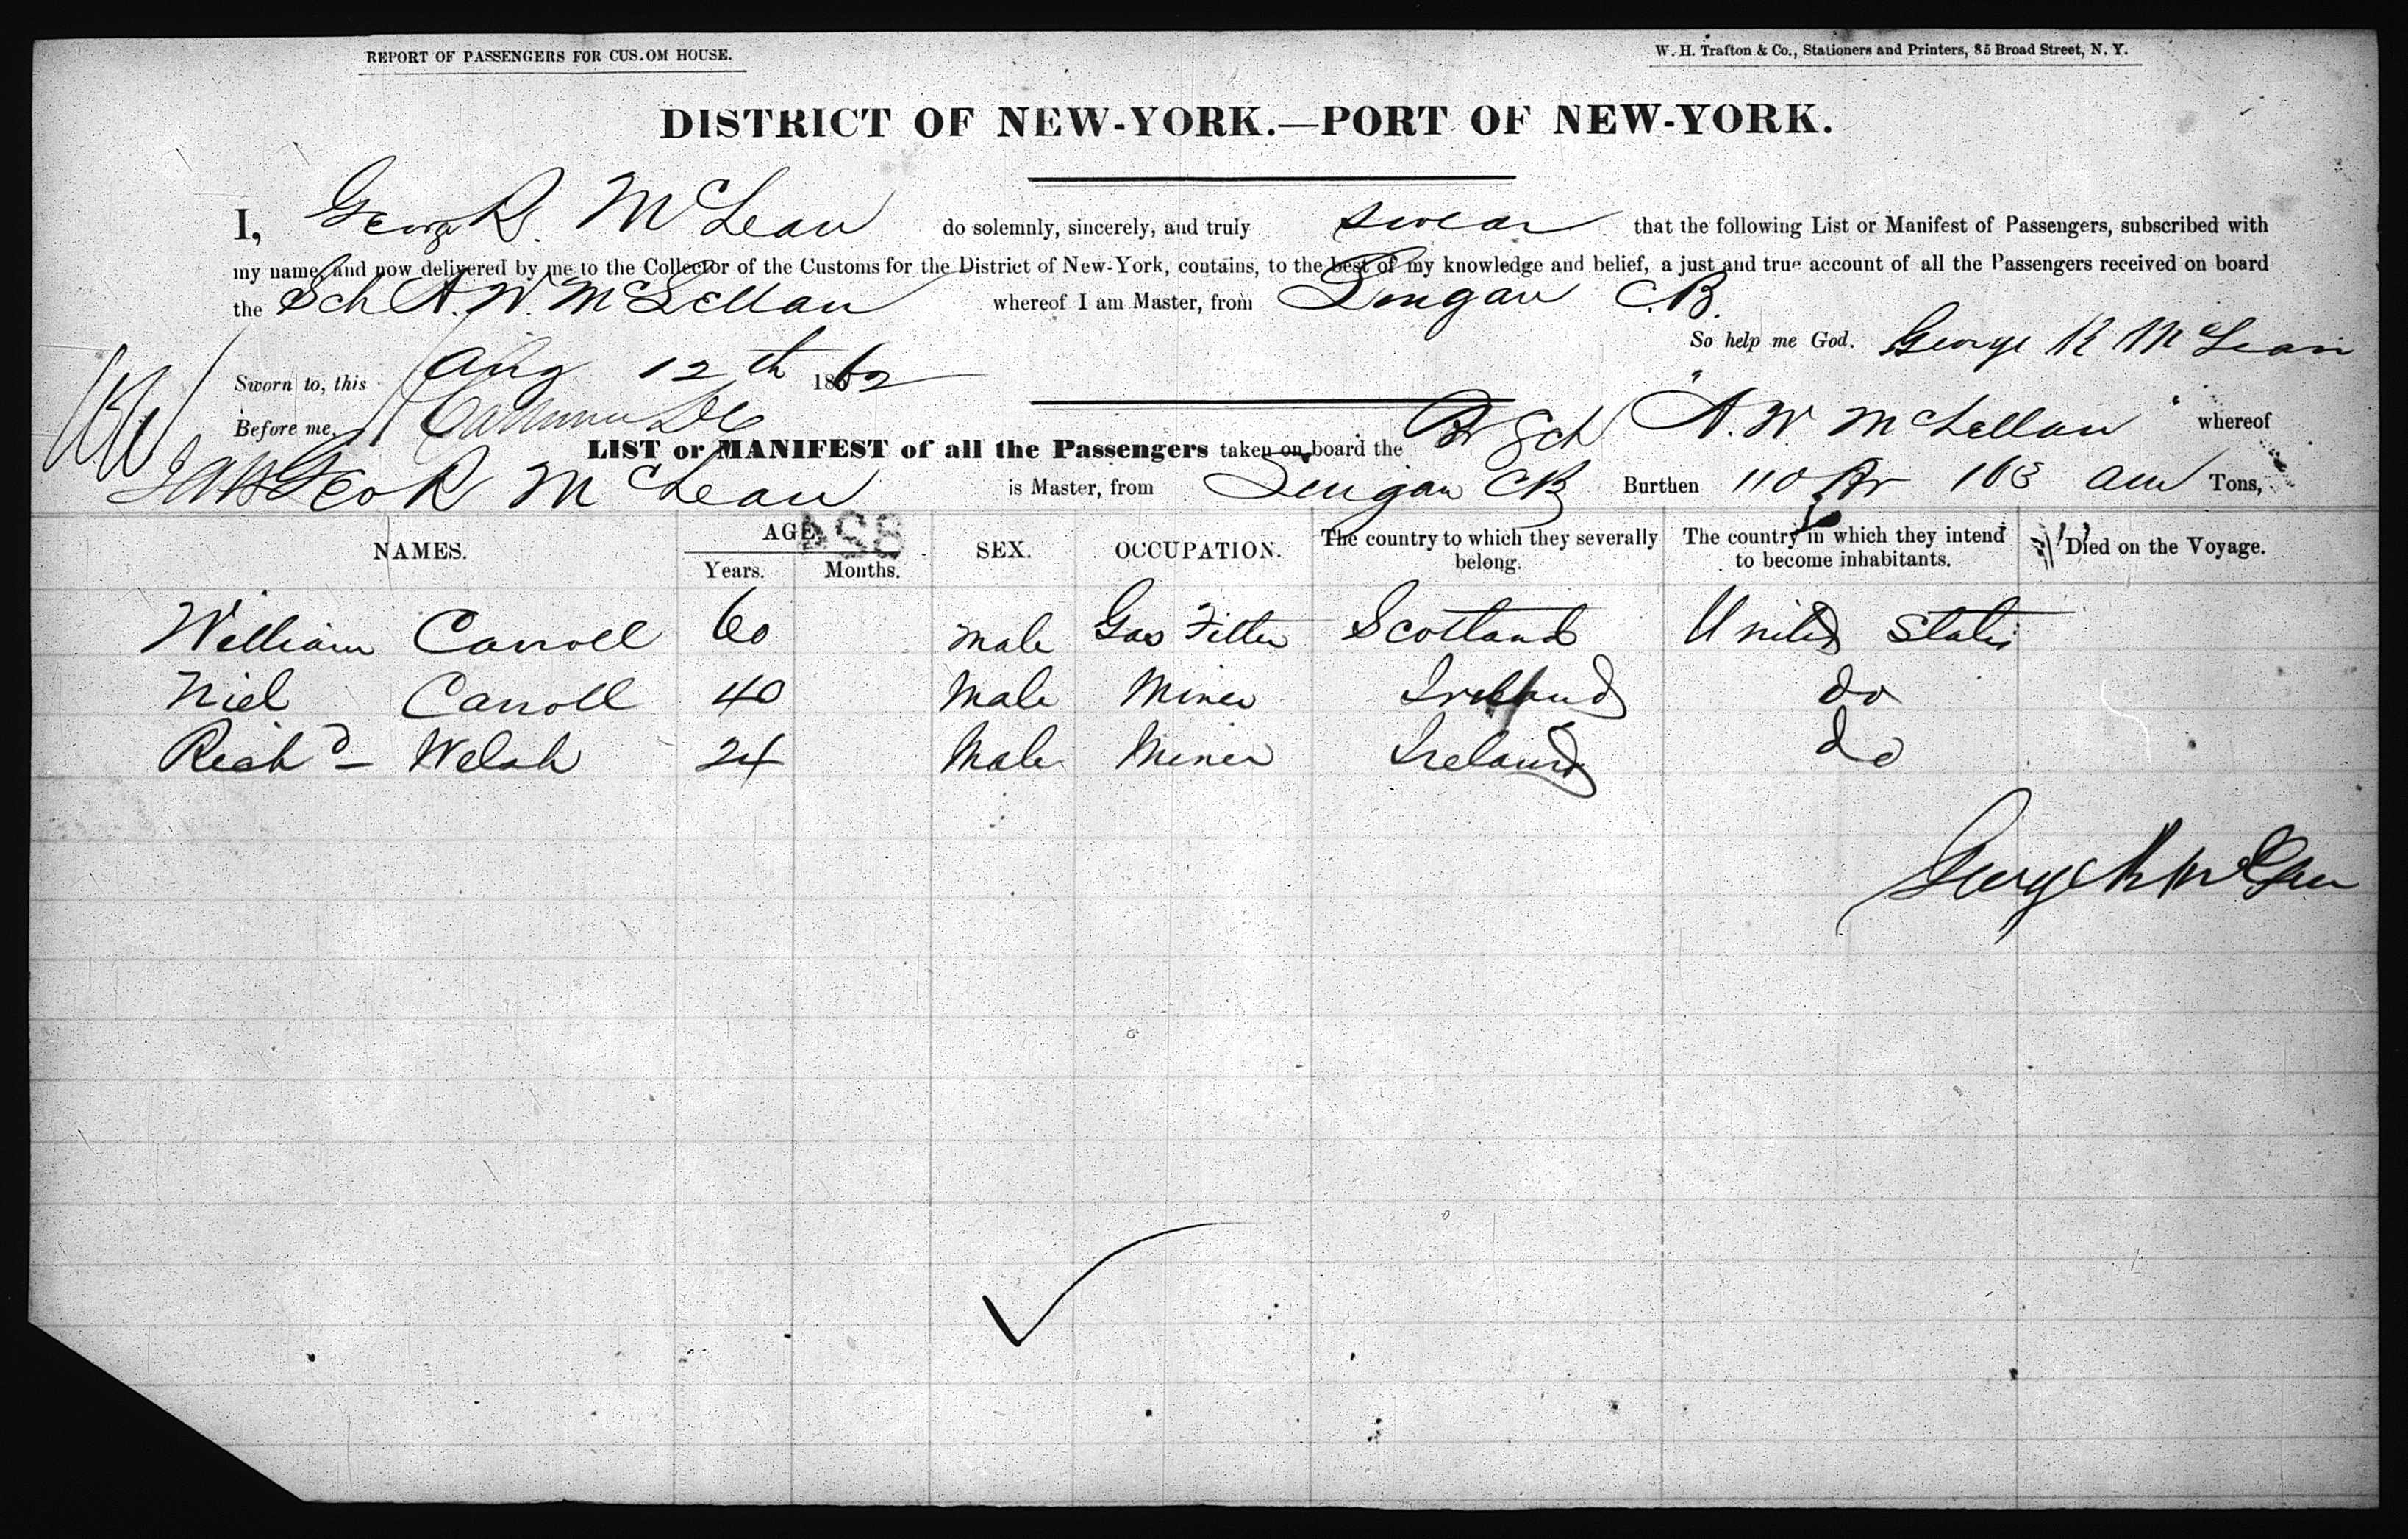 REPORT OF PASSENGERS FOR CUS.OM HOUSE.
W. H. Trafton & Co., Stationers and Printers, 85 Broad Street, N. Y.
DISTRICT OF NEW-YORK.—PORT OF NEW-YORK.
I, George R. McLean do solemnly, sincerely, and truly swear that the following List or Manifest of Passengers, subscribed with
my name, and now delivered by me to the Collector of the Customs for the District of New-York, contains, to the best of my knowledge and belief, a just and true account of all the Passengers received on board
the Sch A. W. McLellan whereof I am Master, from Lingan C.B.
So help me God. George R McLean
Sworn to, this Aug 12th 1862
Before me,
LIST or MANIFEST of all the Passengers taken on board the Br Sch "A. W McLellan" whereof
Geo R McLean is Master, from Lingan CB Burthen 110 Br 163 Am Tons,
NAMES. AGE. SEX. OCCUPATION. The country to which they severally belong. The country in which they intend to become inhabitants. Died on the Voyage.
Years. Months.
824
William Carroll 60 male Gas Fitter Scotland United States
Niel Carroll 40 Male Miner Ireland do
Richd - Welsh 24 Male Miner Ireland do
George R McLean